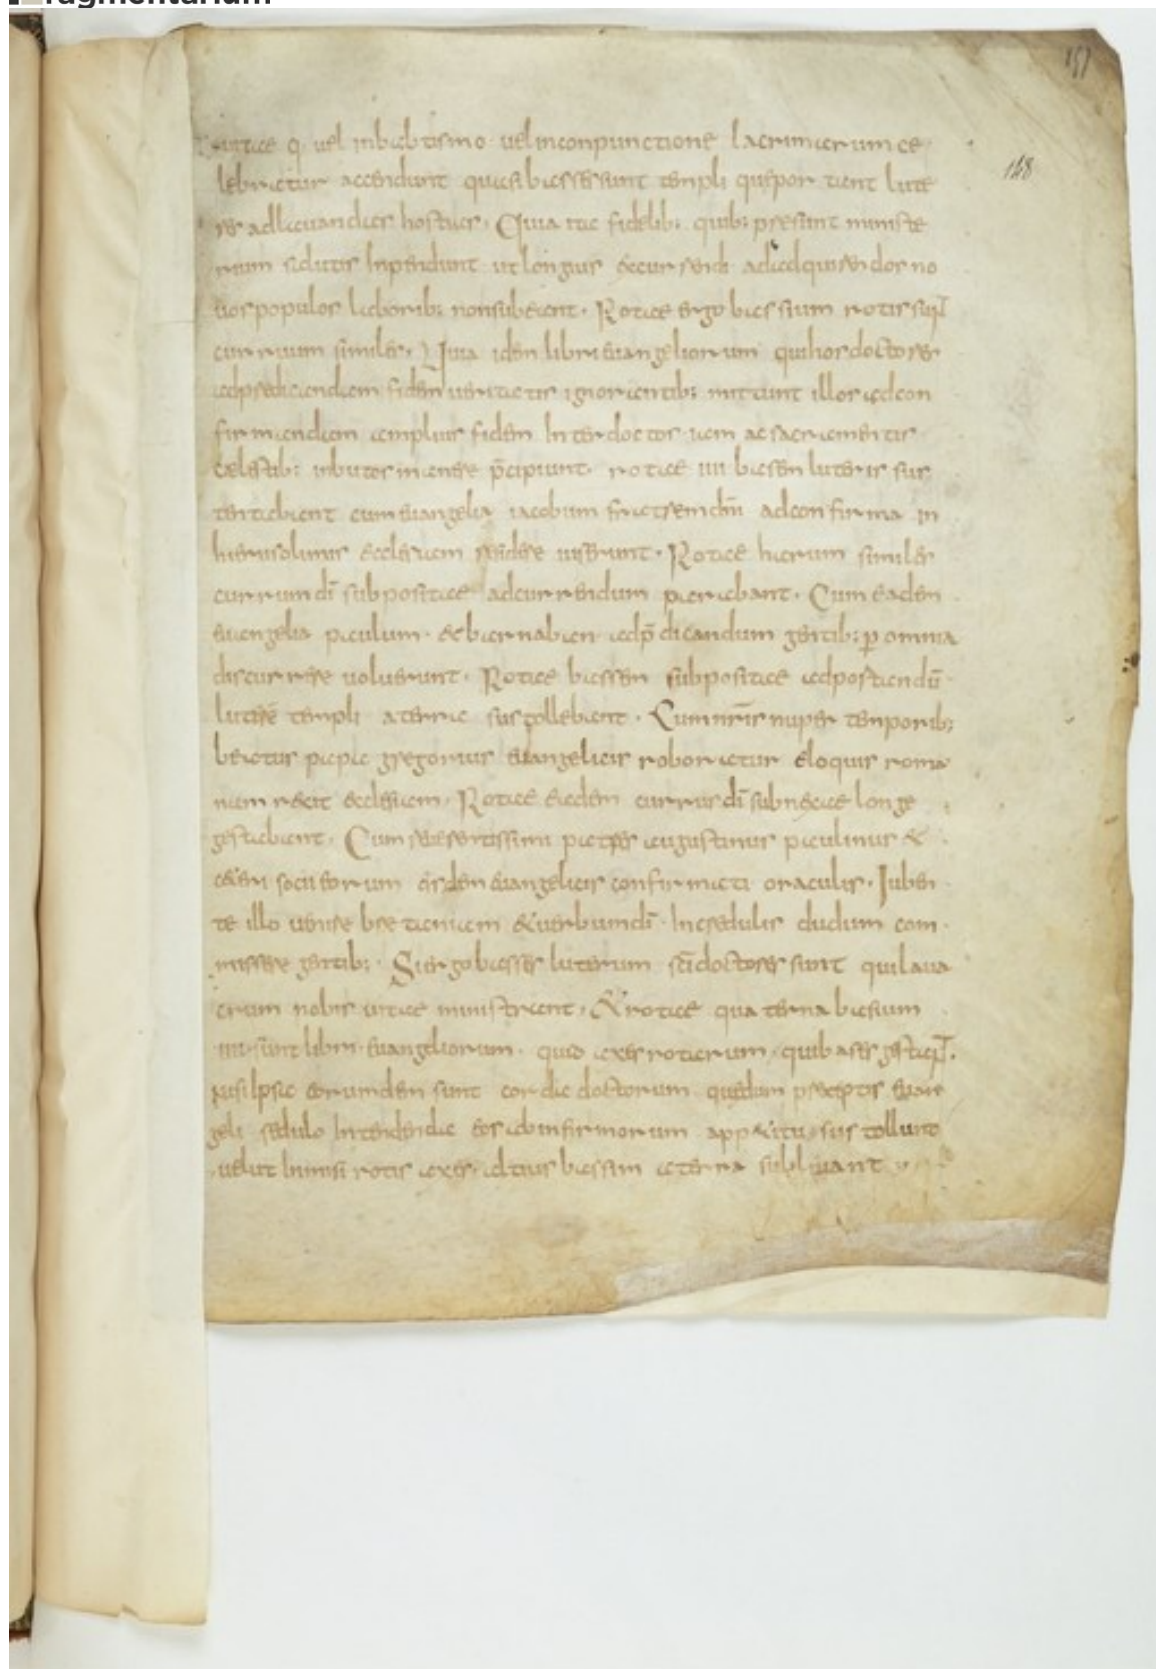 fragmentarium
151
148
uitae q. uel inbabtismo uel inconpunctione lacrimarum ce
lebratur accendunt quasi basses sunt templi que portant lute
res ad leuandas hostias. Quia ita fidelib; quib; presunt ministe
rium salutis Inpendunt ut longius excursendi ad adquirendos no
uos populos laborib; non subeant. Rotae ergo bassium rotis sunt
curruum similes. Quia idem libri euangeliorum qui hos doctores
ad predicandam fidem ueritatis ignorantib; mittunt illos ad con
firmandam amplius fidem Inter doctos iam ac sacramentis
celestib; inbutos manere p̄cipiunt. rotae iiii basen luteris sus
tentabant cum euangelia iacobum fratrem dn̄i ad confirma in
hierusolimis ecclesiam residere iuserunt. Rotae harum similes
currum dī subpositae ad currendum parabant. Cum eadem
euangelia paulum. & barnaban ad p̄dicandum gentib; ꝑ omnia
discurrere uoluerunt. Rotae bassem subpositae ad portandū
luterē templi a terra sustollebant. Cum nr̄is nuper temporib;
beatus papa gregorius euangelicis roboratur eloquiis roma
nam rexit ecclesiam. Rotae eaedem currus dī subnexae longe
gestabant. Cum reuerentissimi patres augustinus paulinus &
ceteri socii eorum eisdem euangelicis confirmati oraculis. Iuben
te illo uenire brettaniam & uerbum dī Incredulis dudum com
missere gentib; Si ergo basses luterum sc̄i doctores sunt qui laua
crum nobis uitae ministrant. & rotae quaterna basium
iiii sunt libri euangeliorum. quid axes rotarum. quib
nisi Ipsa eorumdem sunt corda doctorum quae dum preceptis euan
geli sedulo Intendenda eos ab infirmorum appetitu sustollunt
uelut
rotis axes altius bassim a terra subleuant